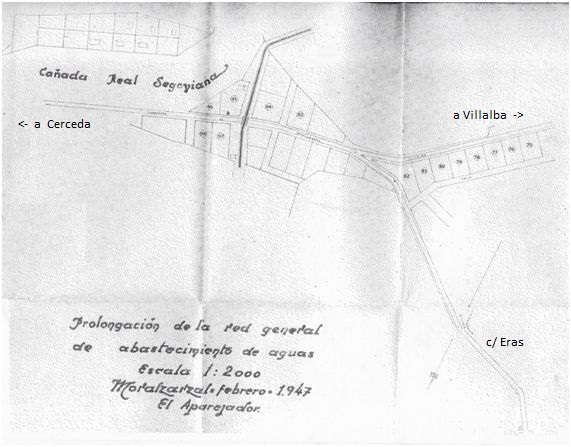 Cañada Real Segoviana
<- a Cerceda
a Villalba ->
96
95
94
92
98
97
82
81
80
79
78
77
76
75
c/ Eras
Prolongación de la red general
de abastecimiento de aguas
Escala 1:2000
Moralzarzal=febrero=1.947
El Aparejador.